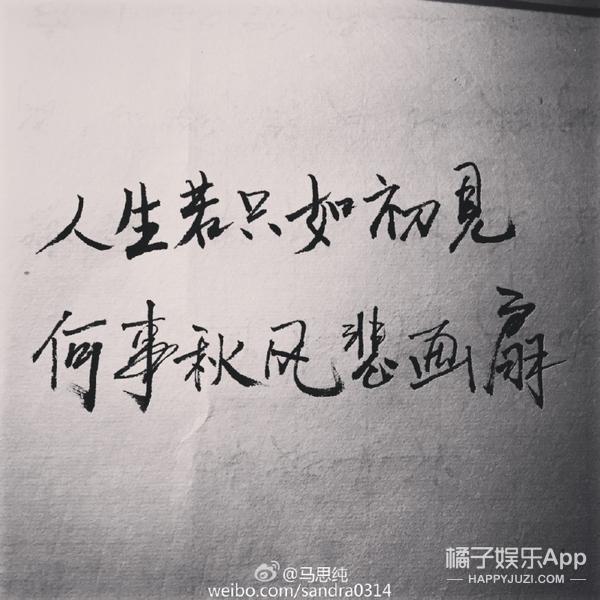 人生若只如初見
何事秋风悲画扇
橘子娱乐App
HAPPYJUZI.COM
@马思纯
weibo.com/sandra0314